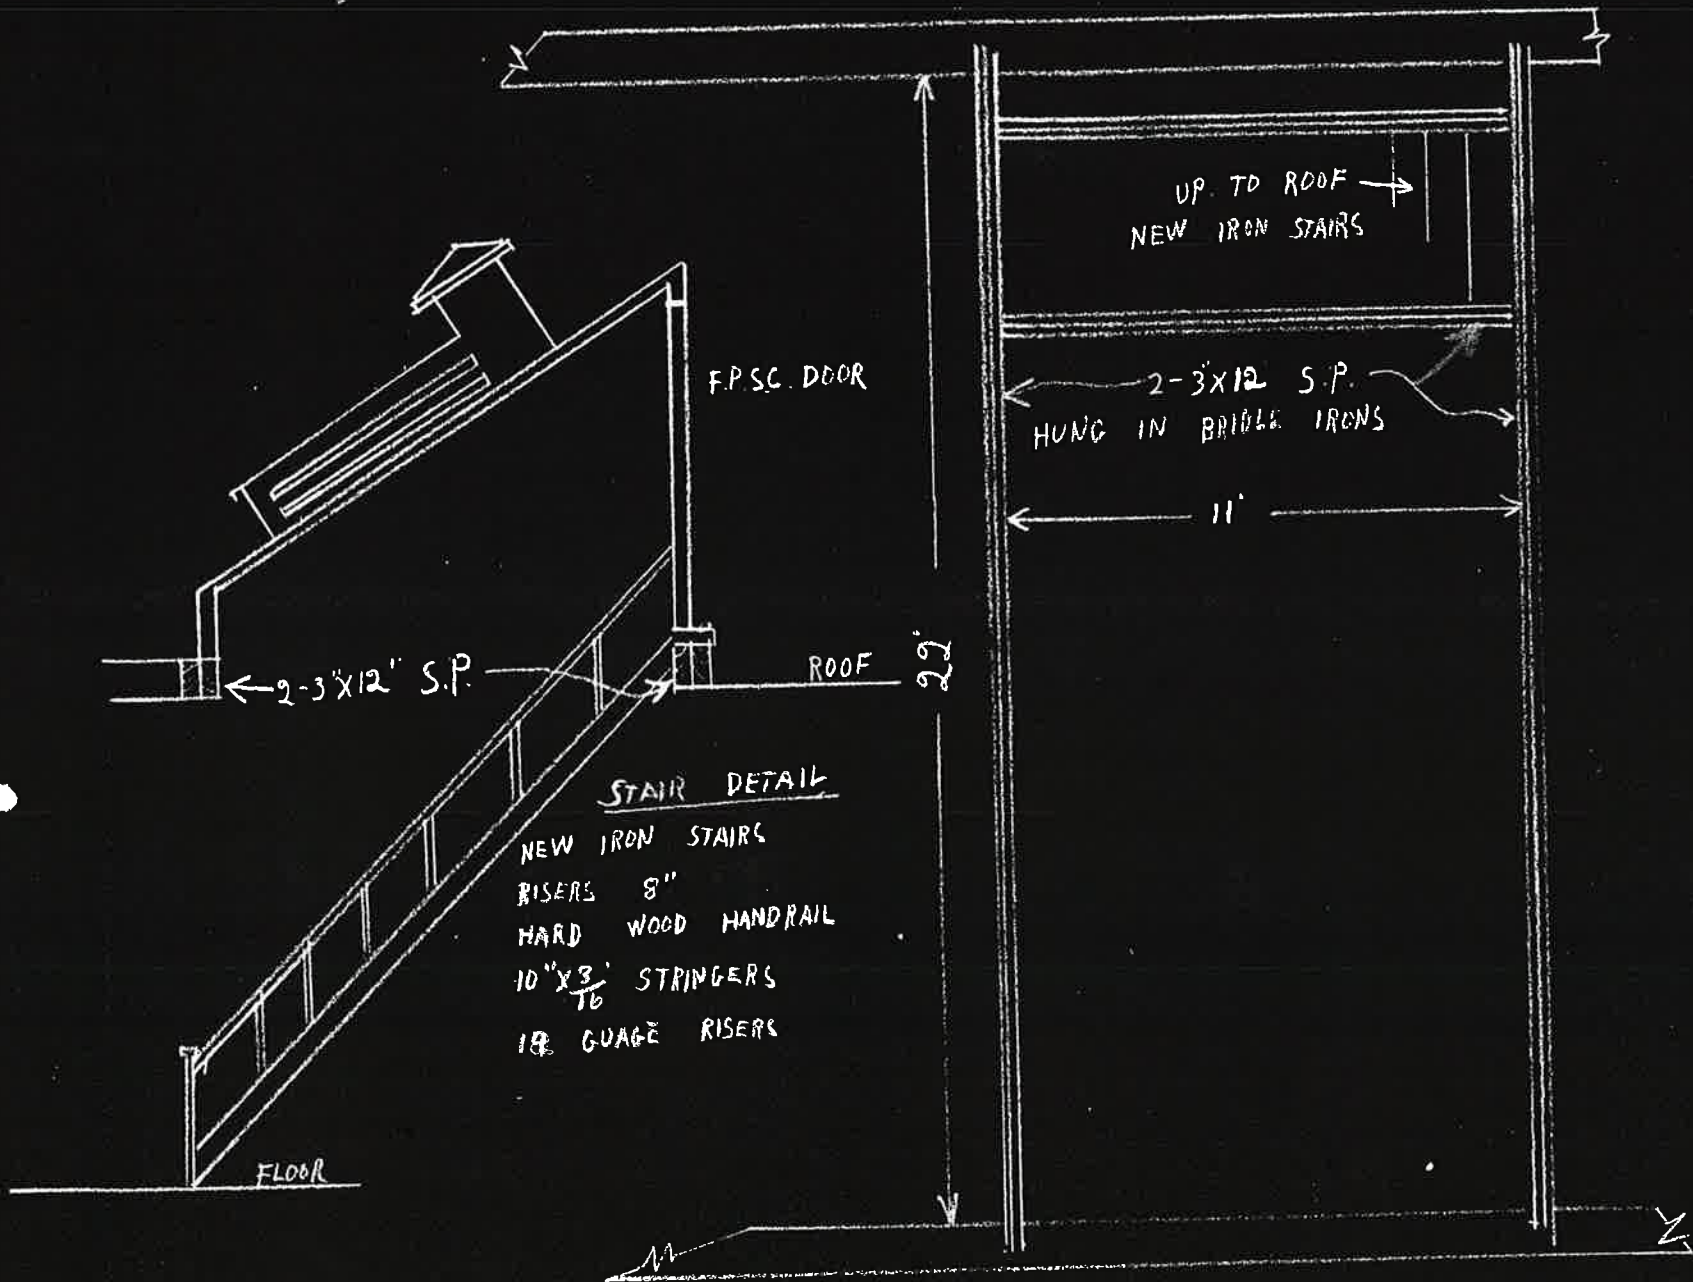 UP. TO ROOF
NEW IRON STAIRS
F.P.SC. DOOR
2-3"X12 S.P.
HUNG IN BRIDLE IRONS
11'
22'
2-3"X12" S.P.
ROOF
STAIR DETAIL
NEW IRON STAIRS
RISERS 8"
HARD WOOD HANDRAIL
10"X3/16" STRINGERS
GUAGE RISERS
FLOOR